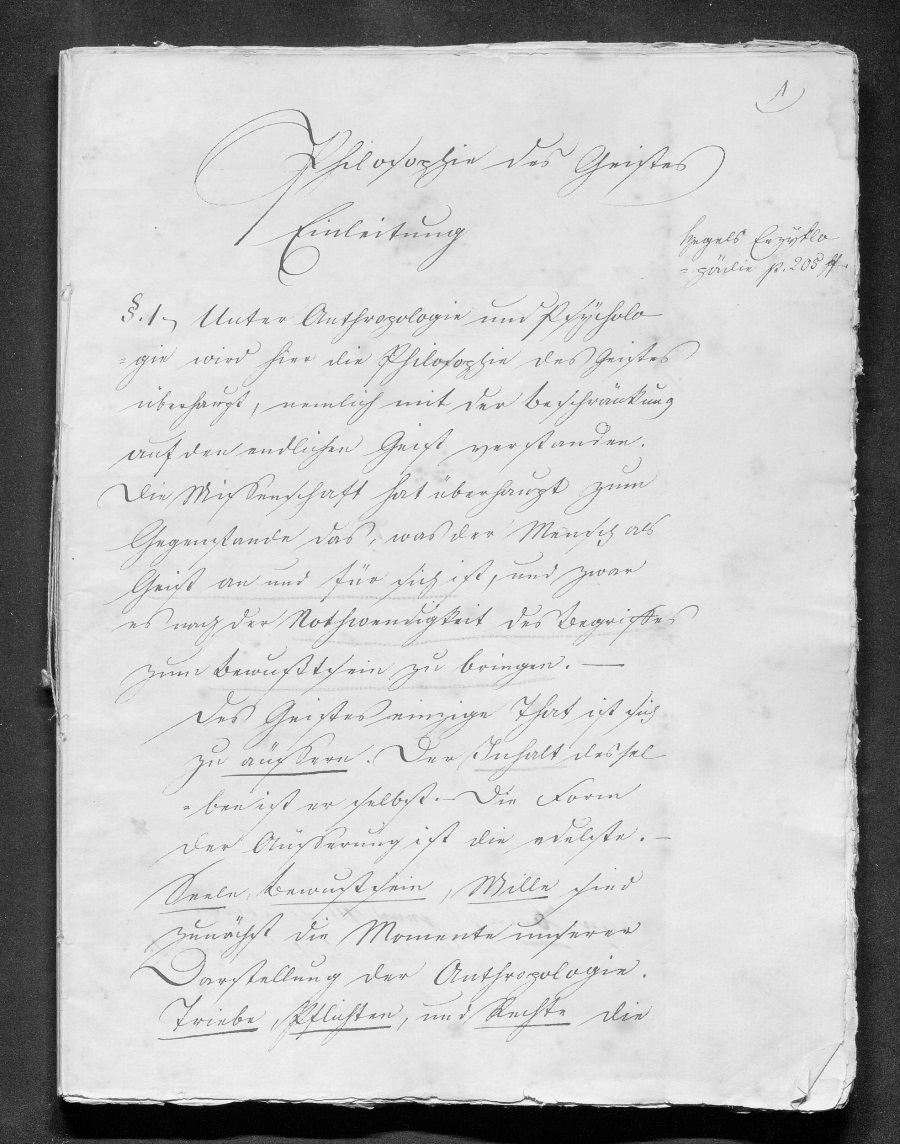 1
Philosophie des Geistes
Einleitung
Hegels Enzyklo
=pädie p. 205 ff.
§. 1. Unter Anthropologie und Psycholo
=gie wird hier die Philosophie des Geistes
überhaupt, nemlich mit der Beschränkung
auf den endlichen Geist verstanden.
Die Wissenschaft hat überhaupt zum
Gegenstande das, was der Mensch als
Geist an und für sich ist, und zwar
es nach der Nothwendigkeit des Begriffes
zum Bewußtsein zu bringen. —
Des Geistes einzige That ist sich
zu äussern. Der Inhalt dessel
=ben ist er selbst. — Die Form
der Äusserung ist die edelste. —
Seele, Bewustsein, Wille sind
zunächst die Momente unserer
Darstellung der Anthropologie.
Triebe, Pflichten, und Rechte die